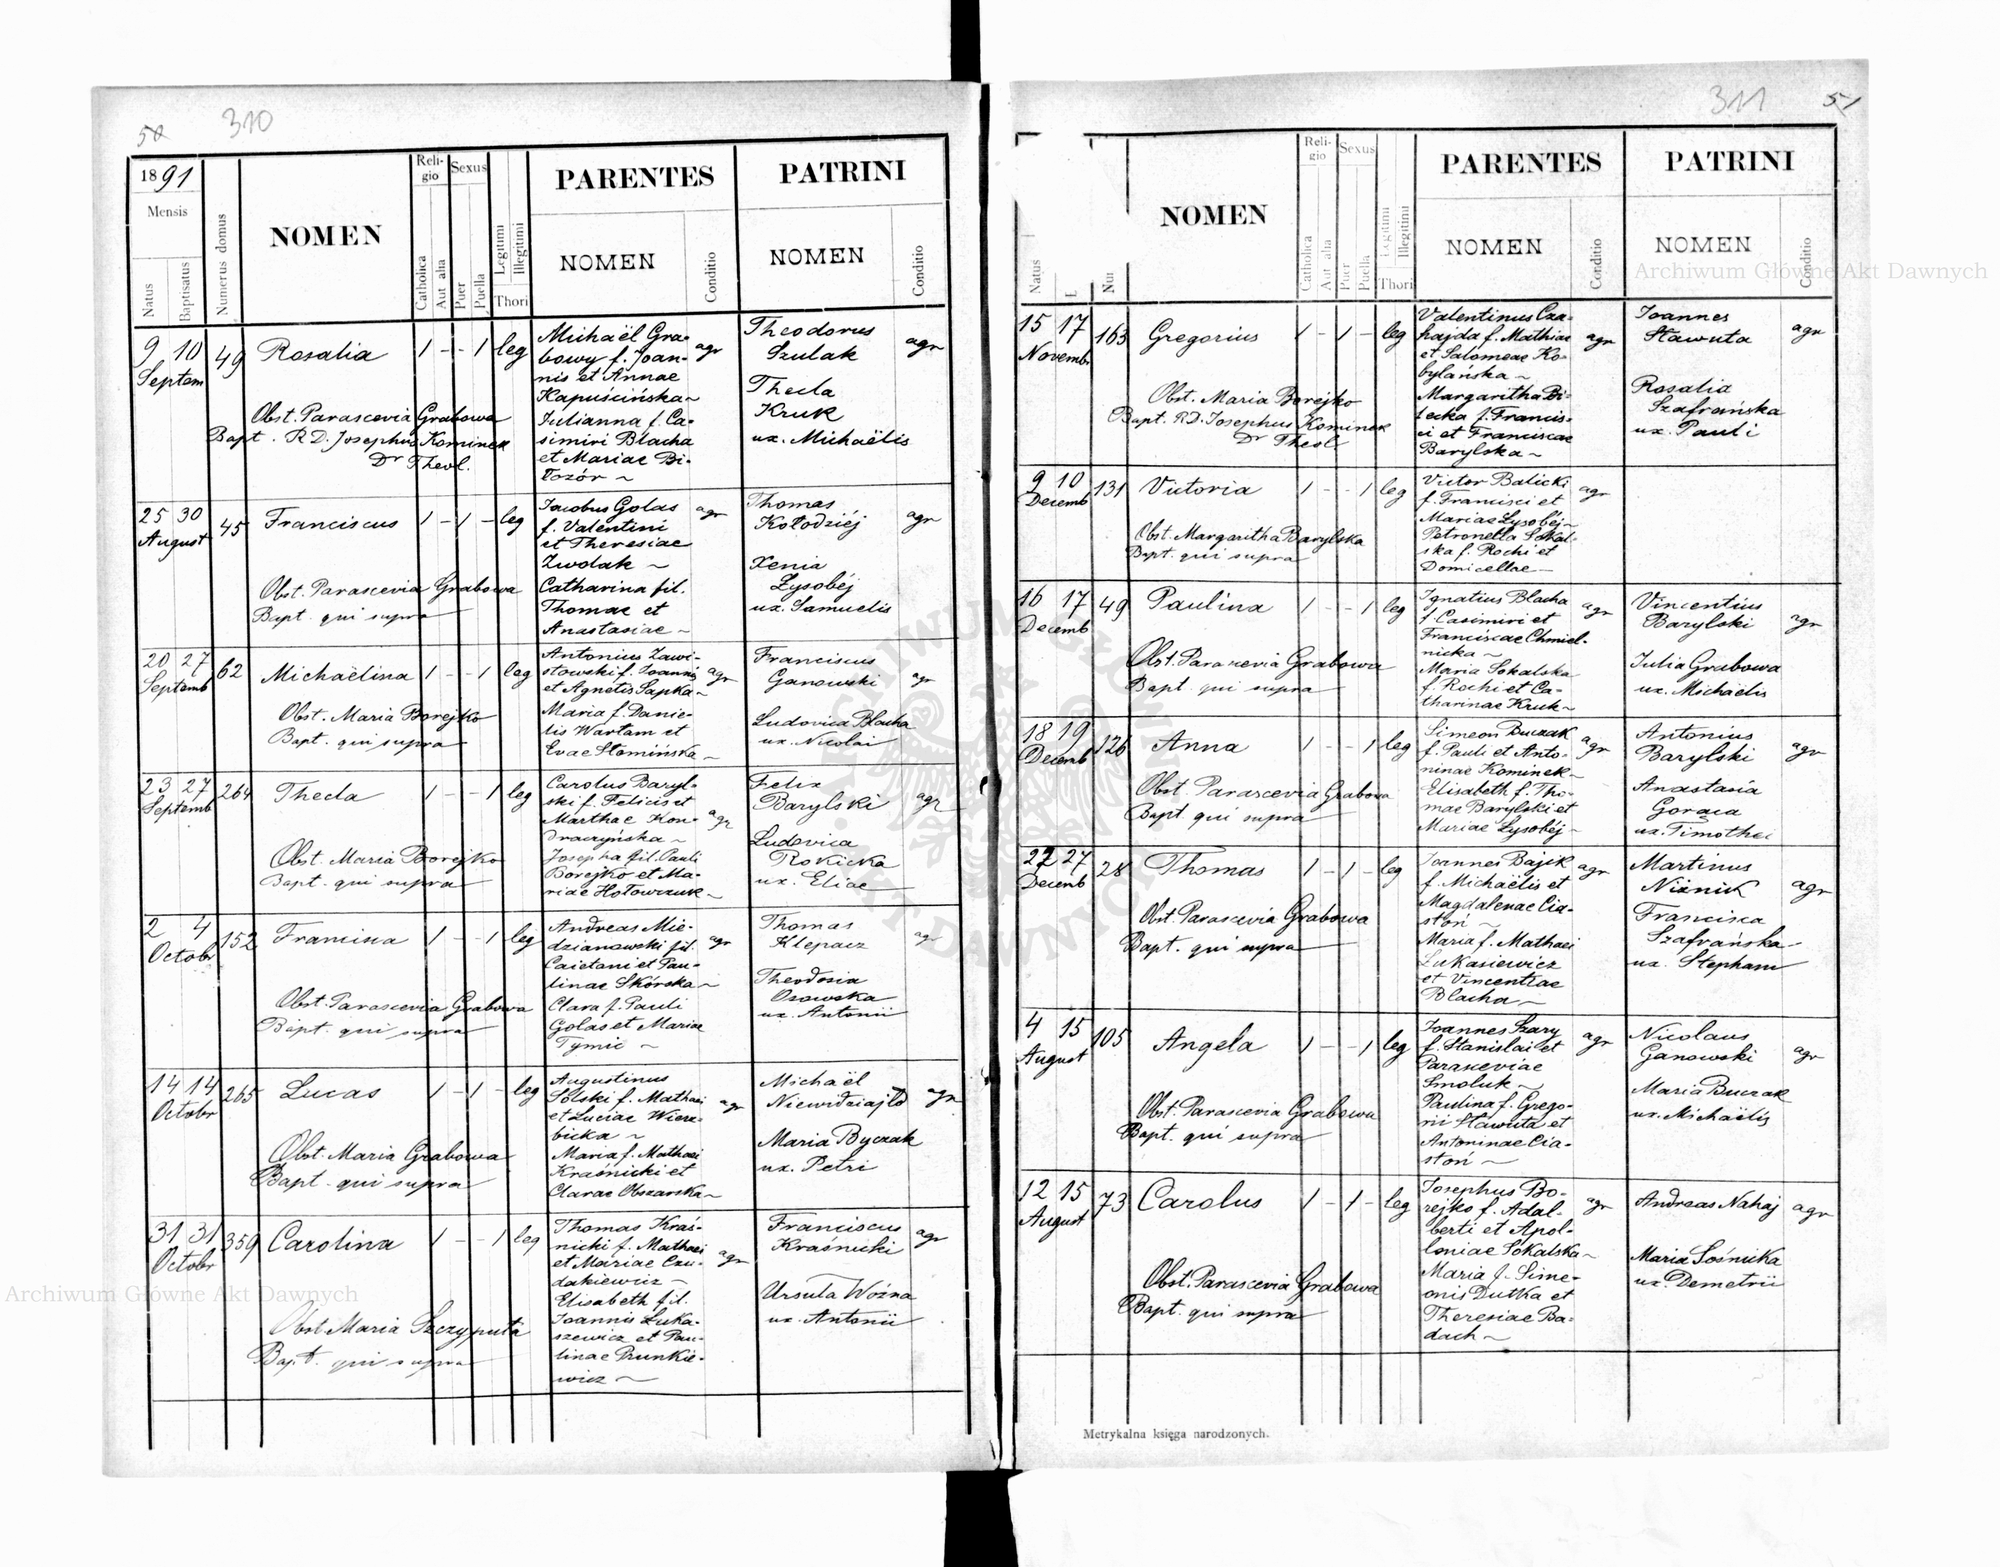 50 310
1891
Mensis
Natus
Baptisatus
Numerus domus
NOMEN
Reli-
gio
Catholica
Aut alia
Sexus
Puer
Puella
Legitimi
Illegitimi
Thori
PARENTES
NOMEN
Conditio
PATRINI
NOMEN
Conditio
9 10
Septem
49
Rosalia
1 - - 1 leg
Obst. Parascevia Grabowa
Bapt. R.D. Josephus Kominek
Dr Theol.
Michaël Gra-
bowy f. Joan-
nis et Annae
Kapuścińska ~
Julianna f. Ca-
simiri Blacha
et Mariae Bi-
łozór ~
agr
Theodorus
Szulak
Thecla
Kruk
ux. Michaëlis
agr
25 30
August
45
Franciscus
1 - 1 - leg
Obst. Parascevia Grabowa
Bapt. qui supra
Jacobus Golas
f. Valentini
et Theresiae
Zwolak ~
Catharina fil.
Thomae et
Anastasiae ~
agr
Thomas
Kołodziéj
Xenia
Łysobéj
ux. Samuelis
agr
20 27
Septemb
62
Michaëlina
1 - - 1 leg
Obst. Maria Borejko
Bapt. qui supra
Antonius Zawi-
stowski f. Joannis
et Agnetis Sapka ~
Maria f. Danie-
lis Wartam et
Evae Słomińska ~
agr
Franciscus
Ganowski
Ludovica Blacha
ux. Nicolai
agr
23 27
Septemb
264
Thecla
1 - - 1 leg
Obst. Maria Borejko
Bapt. qui supra
Carolus Baryl-
ski f. Felicis et
Marthae Kon-
draczyńska ~
Josepha fil. Pauli
Borejko et Ma-
riae Hołowczuk ~
agr
Felix
Barylski
Ludovica
Rokicka
ux. Eliae
agr
2 4
Octobr
152
Francina
1 - - 1 leg
Obst. Parascevia Grabowa
Bapt. qui supra
Andreas Mie-
dzianowski fil.
Caietani et Pau-
linae Skórska ~
Clara f. Pauli
Golas et Mariae
Tymic ~
agr
Thomas
Klepacz
Theodosia
Osowska
ux. Antonii
agr
14 14
Octobr
265
Lucas
1 - 1 - leg
Obst. Maria Grabowa
Bapt. qui supra
Augustinus
Solski f. Mathaei
et Luciae Wierz-
bicka ~
Maria f. Mathaei
Kraśnicki et
Clarae Obszarska ~
agr
Michaël
Niewidziajło
Maria Byczak
ux. Petri
agr
31 31
Octobr
359
Carolina
1 - - 1 leg
Obst. Maria Szczyputa
Bapt. qui supra
Thomas Kraś-
nicki f. Mathaei
et Mariae Czu-
dakiewicz ~
Elisabeth fil.
Joannis Luka-
szewicz et Pau-
linae Prunkie-
wicz ~
agr
Franciscus
Kraśnicki
Ursula Woźna
ux. Antonii
agr
311 51
Natus
Nu
NOMEN
Reli-
gio
Catholica
Aut alia
Sexus
Puer
Puella
Legitimi
Illegitimi
Thori
PARENTES
NOMEN
Conditio
PATRINI
NOMEN
Conditio
15 17
Novemb
163
Gregorius
1 - 1 - leg
Obst. Maria Borejko
Bapt. R.D. Josephus Kominek
Dr Theol.
Valentinus Cza-
hajda f. Mathiae
et Salomeae Ko-
bylańska ~
Margaritha Bi-
lecka f. Francis-
ci et Franciscae
Barylska ~
agr
Joannes
Sławuta
Rosalia
Szafrańska
ux. Pauli
agr
9 10
Decemb
131
Victoria
1 - - 1 leg
Obst. Margaritha Barylska
Bapt. qui supra
Victor Balicki
f. Francisci et
Mariae Lysobéj ~
Petronella Sokal-
ska f. Rochi et
Domicellae ~
agr
16 17
Decemb
49
Paulina
1 - - 1 leg
Obst. Parascevia Grabowa
Bapt. qui supra
Ignatius Blacha
f. Casimiri et
Franciscae Chmiel-
nicka ~
Maria Sokalska
f. Rochi et Ca-
tharinae Kruk ~
agr
Vincentius
Barylski
Julia Grabowa
ux. Michaëlis
agr
18 19
Decemb
126
Anna
1 - - 1 leg
Obst. Parascevia Grabowa
Bapt. qui supra
Simeon Buczak
f. Pauli et Anto-
ninae Kominek ~
Elisabeth f. Tho-
mae Barylski et
Mariae Lysobéj ~
agr
Antonius
Barylski
Anastasia
Gorąca
ux. Timothei
agr
27 27
Decemb
28
Thomas
1 - 1 - leg
Obst. Parascevia Grabowa
Bapt. qui supra
Joannes Bajik
f. Michaëlis et
Magdalenae Cia-
stoń ~
Maria f. Mathaei
Lukasiewicz
et Vincentiae
Blacha ~
agr
Martinus
Niżnik
Francisca
Szafrańska
ux. Stephani
agr
4 15
August
105
Angela
1 - - 1 leg
Obst. Parascevia Grabowa
Bapt. qui supra
Joannes Szary
f. Stanislai et
Parasceviae
Smoluk ~
Paulina f. Grego-
rii Sławuta et
Antoninae Cia-
stoń ~
agr
Nicolaus
Ganowski
Maria Buczak
ux. Michaëlis
agr
12 15
August
73
Carolus
1 - 1 - leg
Obst. Parascevia Grabowa
Bapt. qui supra
Josephus Bo-
rejko f. Adal-
berti et Apol-
loniae Sokalska ~
Maria f. Sime-
onis Dutka et
Theresiae Ba-
dach ~
agr
Andreas Nahaj
Maria Sośnicka
ux. Demetrii
agr
Metrykalna księga narodzonych.
Archiwum Główne Akt Dawnych
Archiwum Główne Akt Dawnych
ARCHIWUM GŁÓWNE AKT DAWNYCH